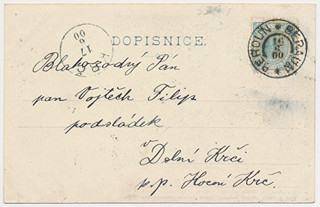 DOPISNICE.
BEROUN * BERAUN
17
6
00
Blahorodný Pán
pan Vojtěch Filip
podsládek
v Dolní Krči
p.p. Horní Krč.